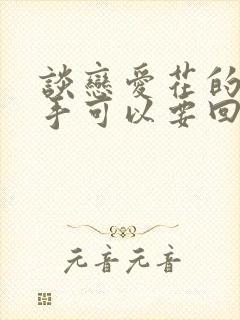 談戀愛花的
手可以要回
元音元音